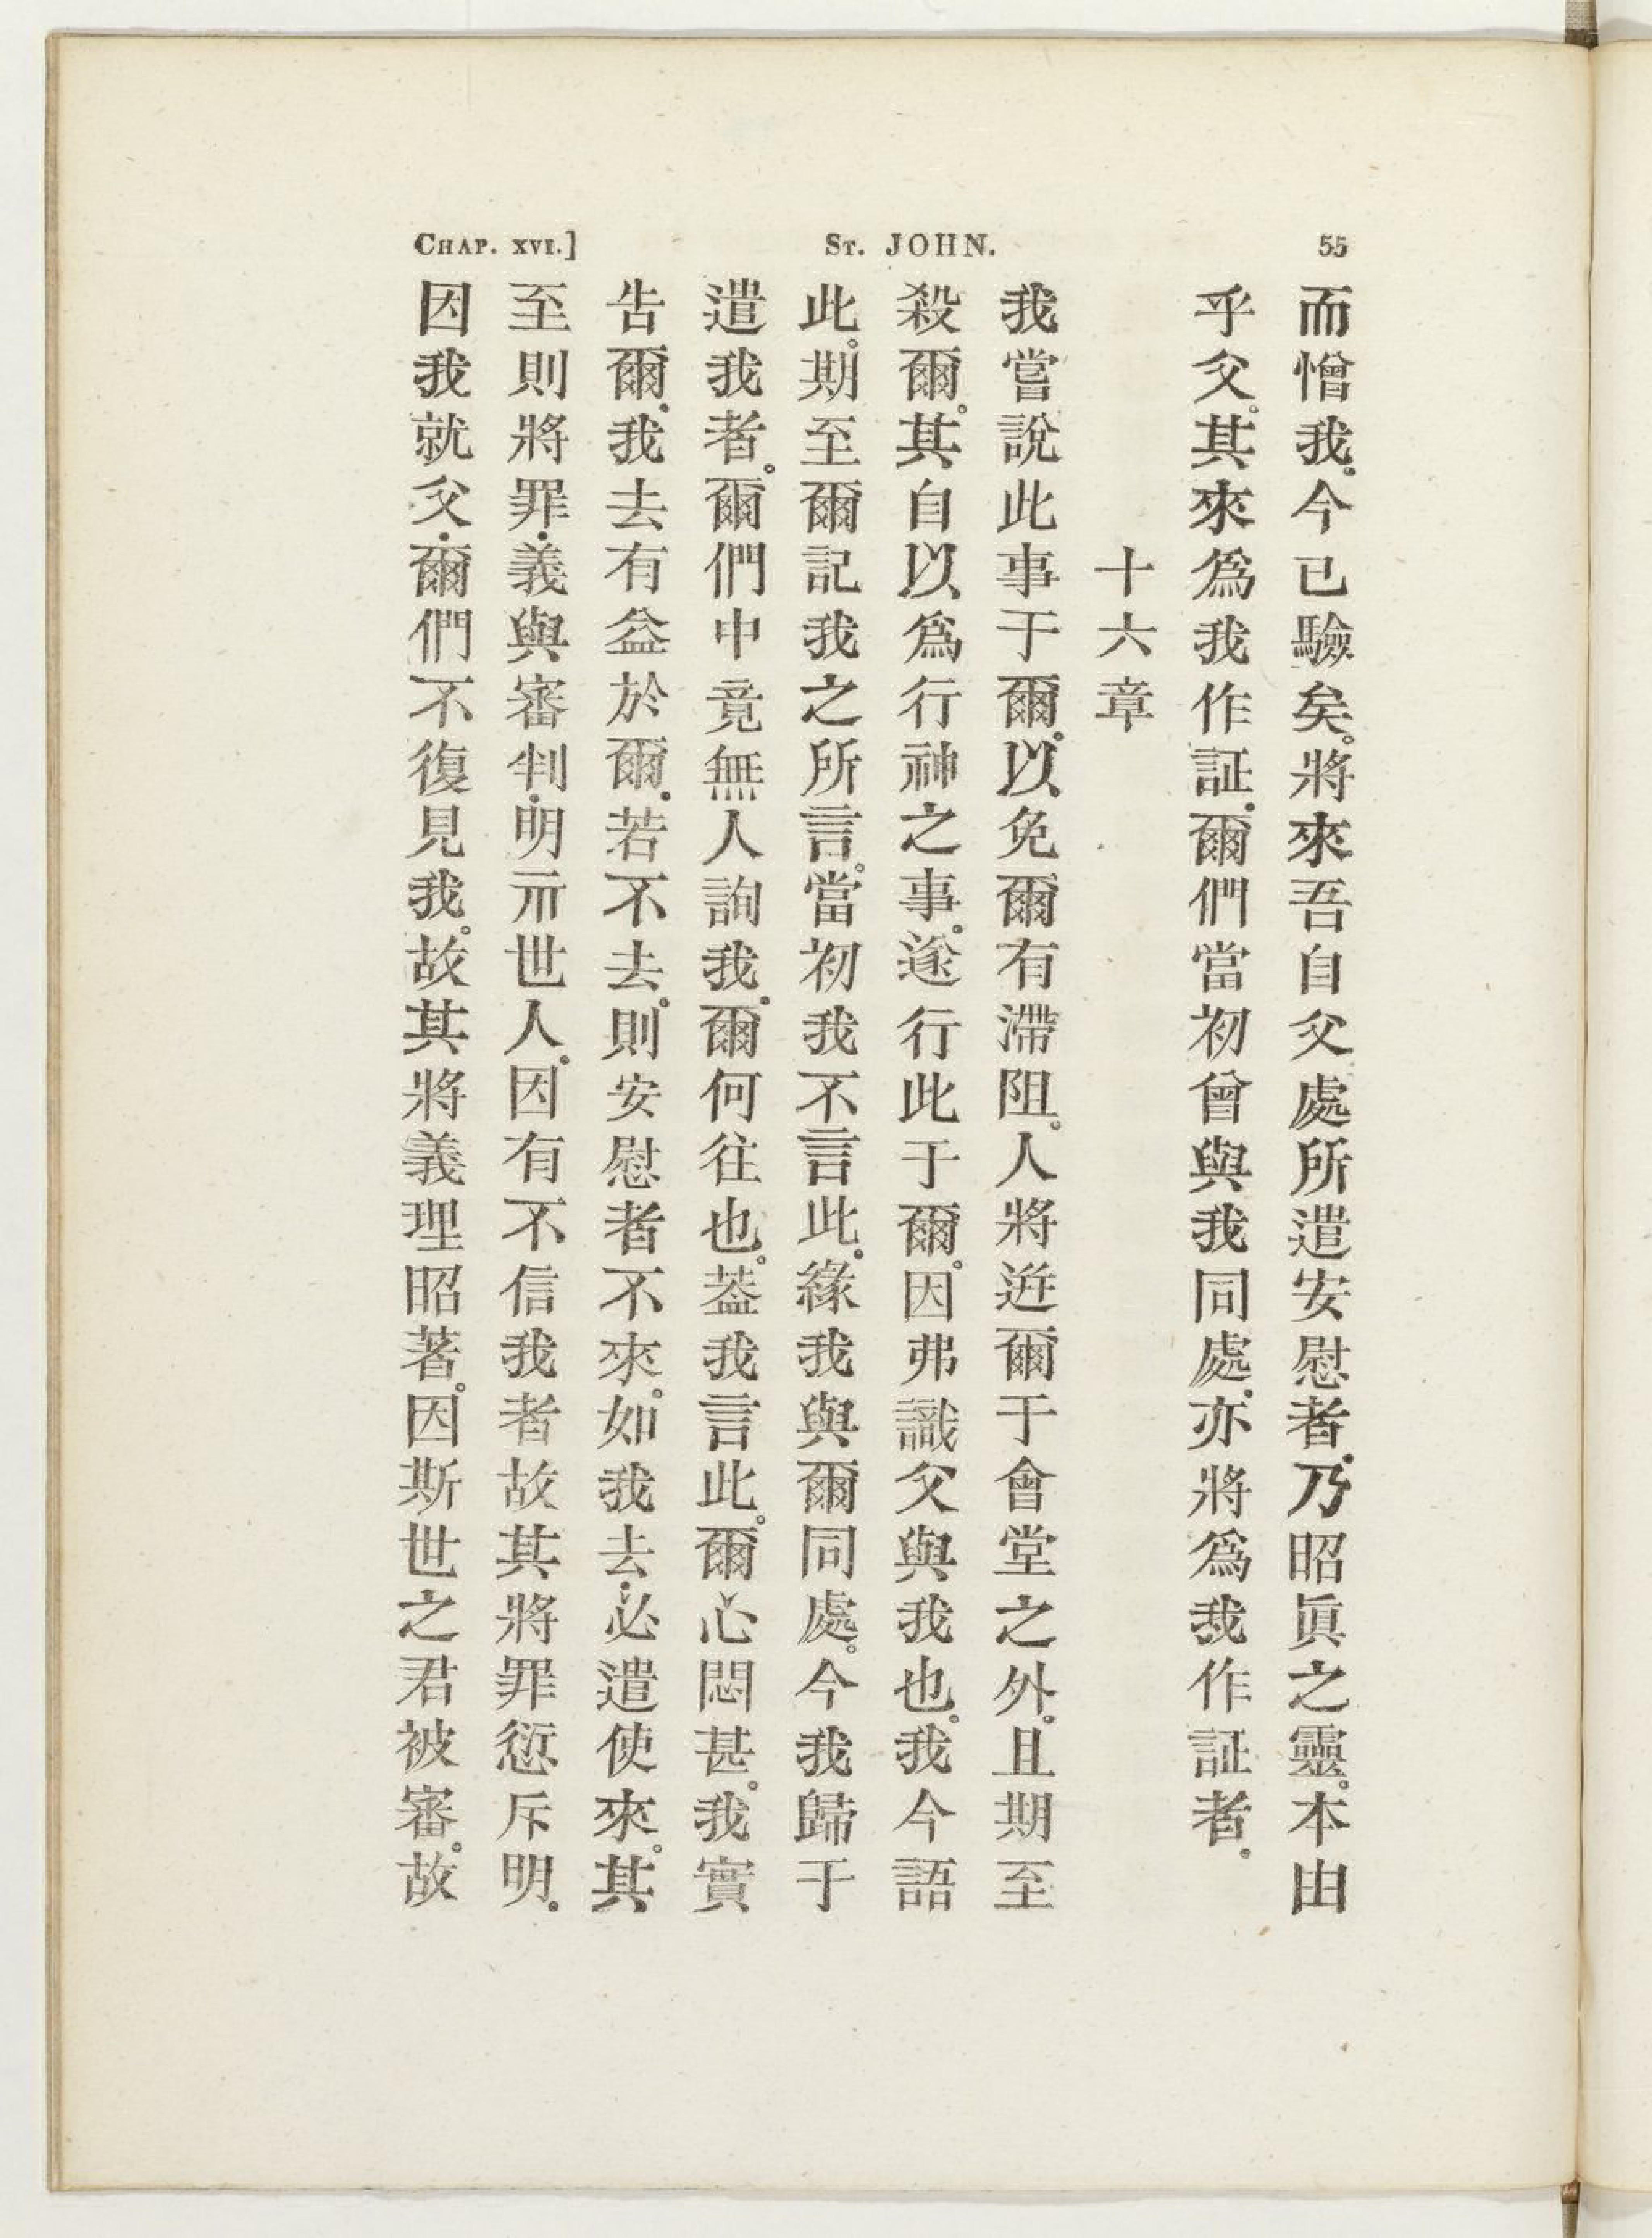 CHAP. XVI.] ST. JOHN. 55
而憎我.今已驗矣。將來吾自父處所遣安慰者.乃昭眞之靈。本由
乎父。其來爲我作証.爾們當初曾與我同處.亦將爲我作証者.
十六章
我嘗說此事于爾.以免爾有滯阻。人將逬爾于會堂之外。且期至
殺爾。其自以爲行神之事。遂行此于爾。因弗識父與我也。我今語
此。期至爾記我之所言。當初我不言此.緣我與爾同處。今我歸于
遣我者。爾們中竟無人詢我.爾何往也。葢我言此。爾心悶甚。我實
告爾.我去有益於爾.若不去。則安慰者不來。如我去.必遣使來。其
至則將罪.義與審判.明示世人.因有不信我者故其將罪愆斥明.
因我就父.爾們不復見我。故其將義理昭著。因斯世之君被審。故